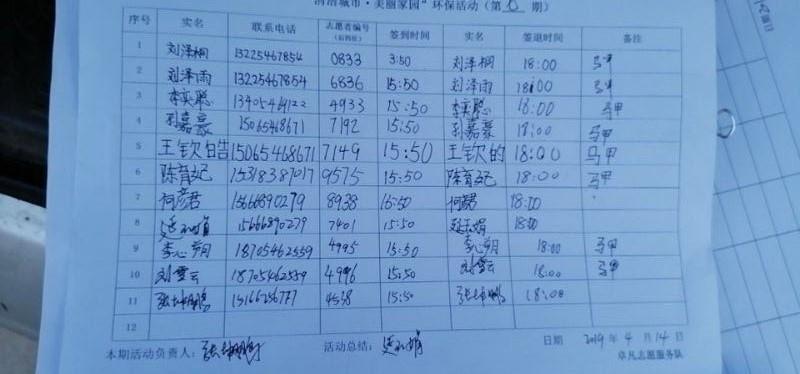 清洁城市·美丽家园"环保活动（第 期）
序号 实名 联系电话 志愿者编号（后四位） 签到时间 实名 签退时间 备注
1 刘泽桐 13225467854 0833 3:50 刘泽桐 18:00 马甲
2 刘泽雨 13225467854 6836 15:50 刘泽雨 18:00 马甲
3 李奕聪 4933 15:50 李奕聪 18:00 马甲
4 刘嘉豪 15065468671 7192 15:50 刘嘉豪 18:00 马甲
5 王钦皓 15065468671 7149 15:50 王钦的 18:00 马甲
6 陈育妃 15318387017 9575 15:50 陈育妃 18:00 马甲
7 何彦君 15666890279 8938 15:50 何彦君 18:00
8 15666890279 7401 15:50 18:00
9 李心玥 18705462559 4995 15:50 李心玥 18:00 马甲
10 刘雪云 18705462559 4996 15:50 刘雪云 18:00 马甲
11 张坤鹏 15166256777 4538 15:50 张坤鹏 18:00
12
本期活动负责人：张坤鹏 活动总结： 日期 2019年4月14日
卓凡志愿服务队